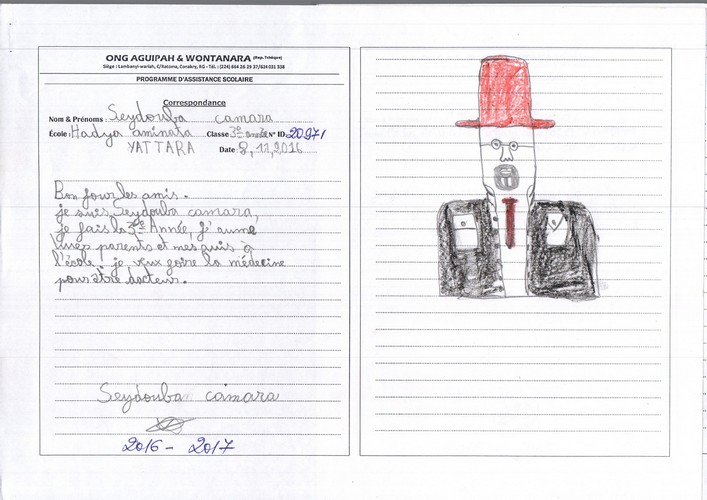 ONG AGUIPAH & WONTANARA (Rép. Tchèque)
Siège : Lambanyi-wariah, C/Ratoma, Conakry, RG - Tél. : (224) 664 26 29 37/624 031 338
PROGRAMME D'ASSISTANCE SCOLAIRE
Correspondance
Nom & Prénoms : Seydouba camara
École : Hadya aminata Classe 3e année N° ID: 20971
YATTARA Date : 8,11,2016
Bon jour les amis.
je suis Seydouba camara,
je fais la 3e Année, j' aime
mes parents et mes amis à
l'école. je veux faire la médecine
pour être docteur.
Seydouba camara
2016 - 2017